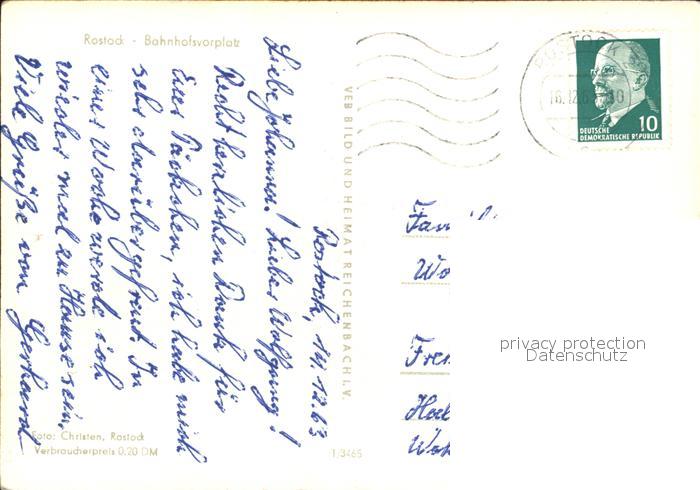 Rostock - Bahnhofsvorplatz
Rostock, 14.12.63
Liebe Johanna! Lieber Wolfgang!
Recht herzlichen Dank für
Euer Päckchen, ich habe mich
sehr darüber gefreut. In
einer Woche werde ich
wieder mal zu Hause sein.
Viele Grüße von Gerhard
Foto: Christen, Rostock
Verbraucherpreis 0,20 DM
1/3465
VEB BILD UND HEIMAT REICHENBACH I. V.
ROSTOCK
16.12.63
10
DEUTSCHE
DEMOKRATISCHE REPUBLIK
Fam
Wo
privacy protection
Datenschutz